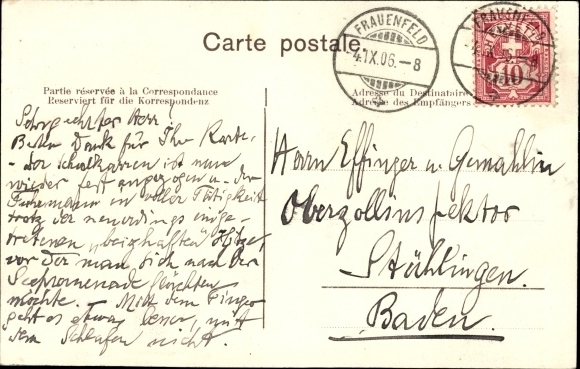 Carte postale.
FRAUENFELD
4.IX.06.-8
FRAUENFELD
10
Partie réservée à la Correspondance
Reserviert für die Korrespondenz
Adresse du Destinataire
Adresse des Empfängers
Sehr geehrter Herr!
Besten Dank für Ihre Karte.
- Der Schulkarren ist nun
wieder fest angezogen u. der
Fuhrmann in voller Tätigkeit
trotz der neuerdings einge-
tretenen, Hitze,
vor der man sich nach der
Seepromenade flüchten
möchte. Mit dem Finger
geht es etwas besser, mit
dem Schlafen nicht.
Herrn Effinger u. Gemahlin
Oberzollinspektor
Stühlingen.
Baden.